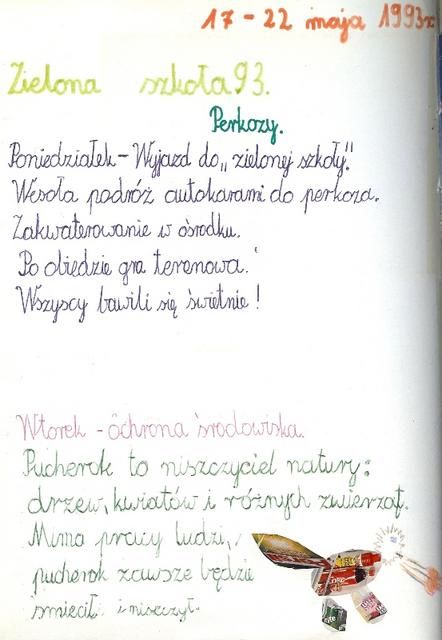 17 - 22 maja 1993r
Zielona szkoła 93.
Perkozy.
Poniedziałek - Wyjazd do „zielonej szkoły".
Wesoła podróż autokarami do perkoza.
Zakwaterowanie w ośrodku.
Po obiedzie gra terenowa.
Wszyscy bawili się świetnie!
Wtorek - ochrona środowiska.
Pucherok to niszczyciel natury:
drzew, kwiatów i różnych zwierząt.
Mimo pracy ludzi,
pucherok zawsze będzie
śmiecił i niszczył.